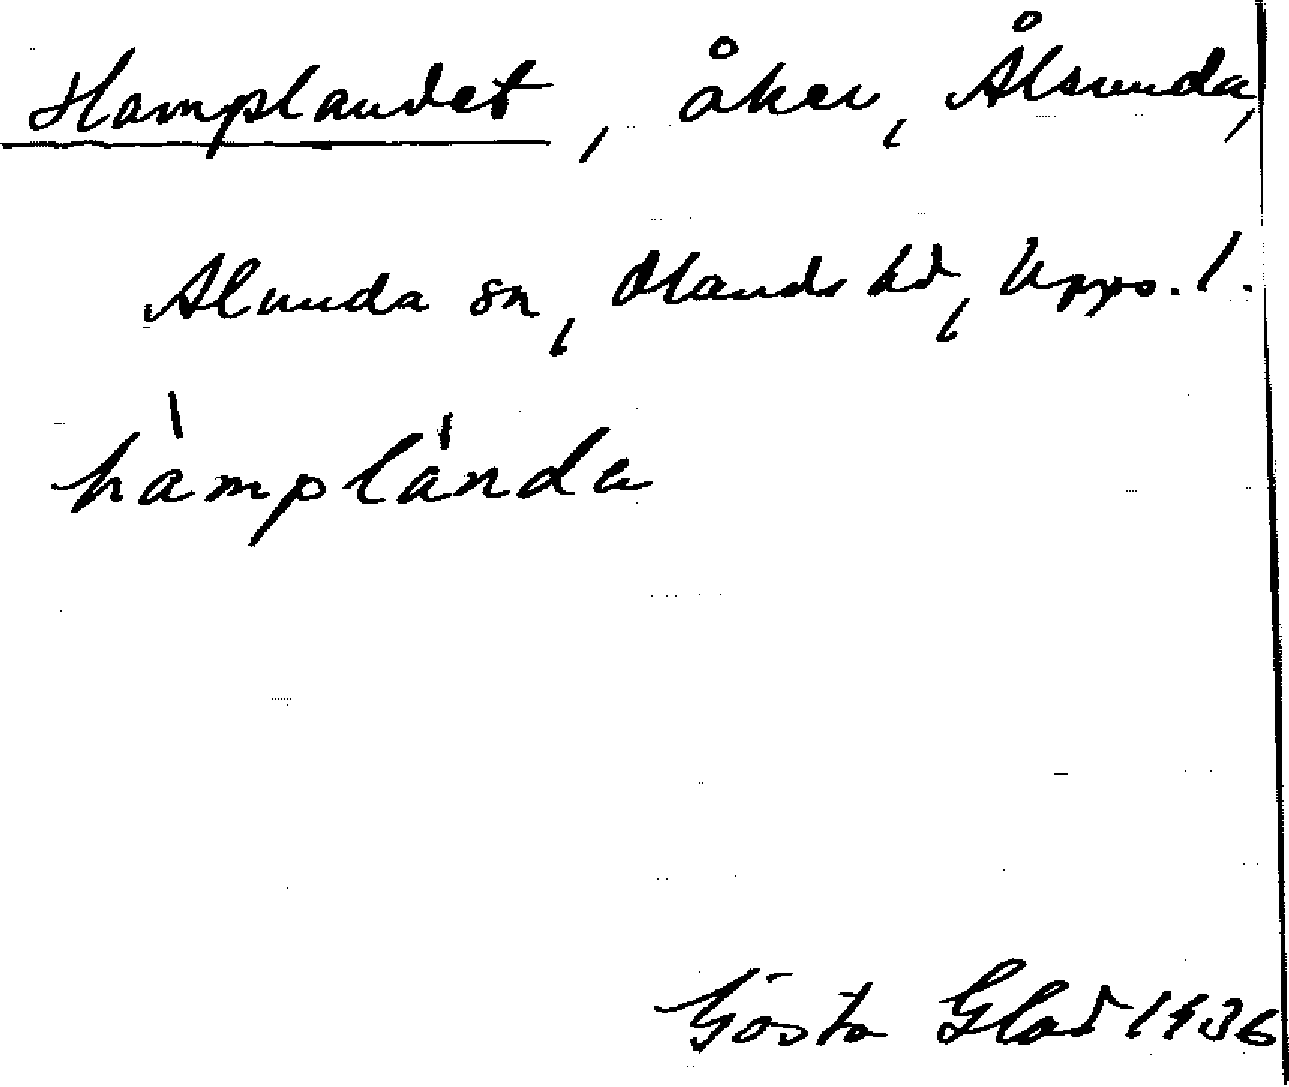 Hamplandet, åker, Ålsunda,
Alunda sn, Olands hd, Upps. l.
hàmplánda
Gösta Glad 1936